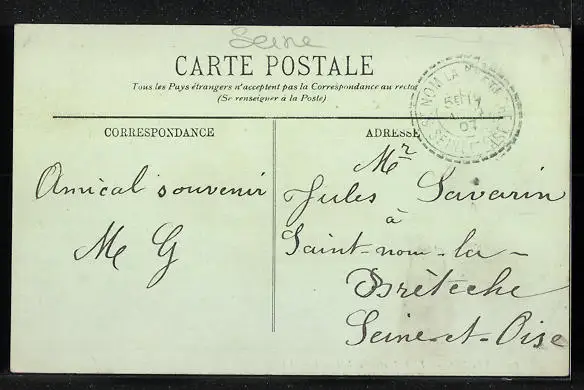 Seine
CARTE POSTALE
Tous les Pays étrangers n'acceptent pas la Correspondance au recto
(Se renseigner à la Poste)
CORRESPONDANCE
ADRESSE
Amical souvenir
M G
Mr
Jules Savarin
à
Saint-nom-la-
Bretèche
Seine-et-Oise
NOM LA
07
SEINE